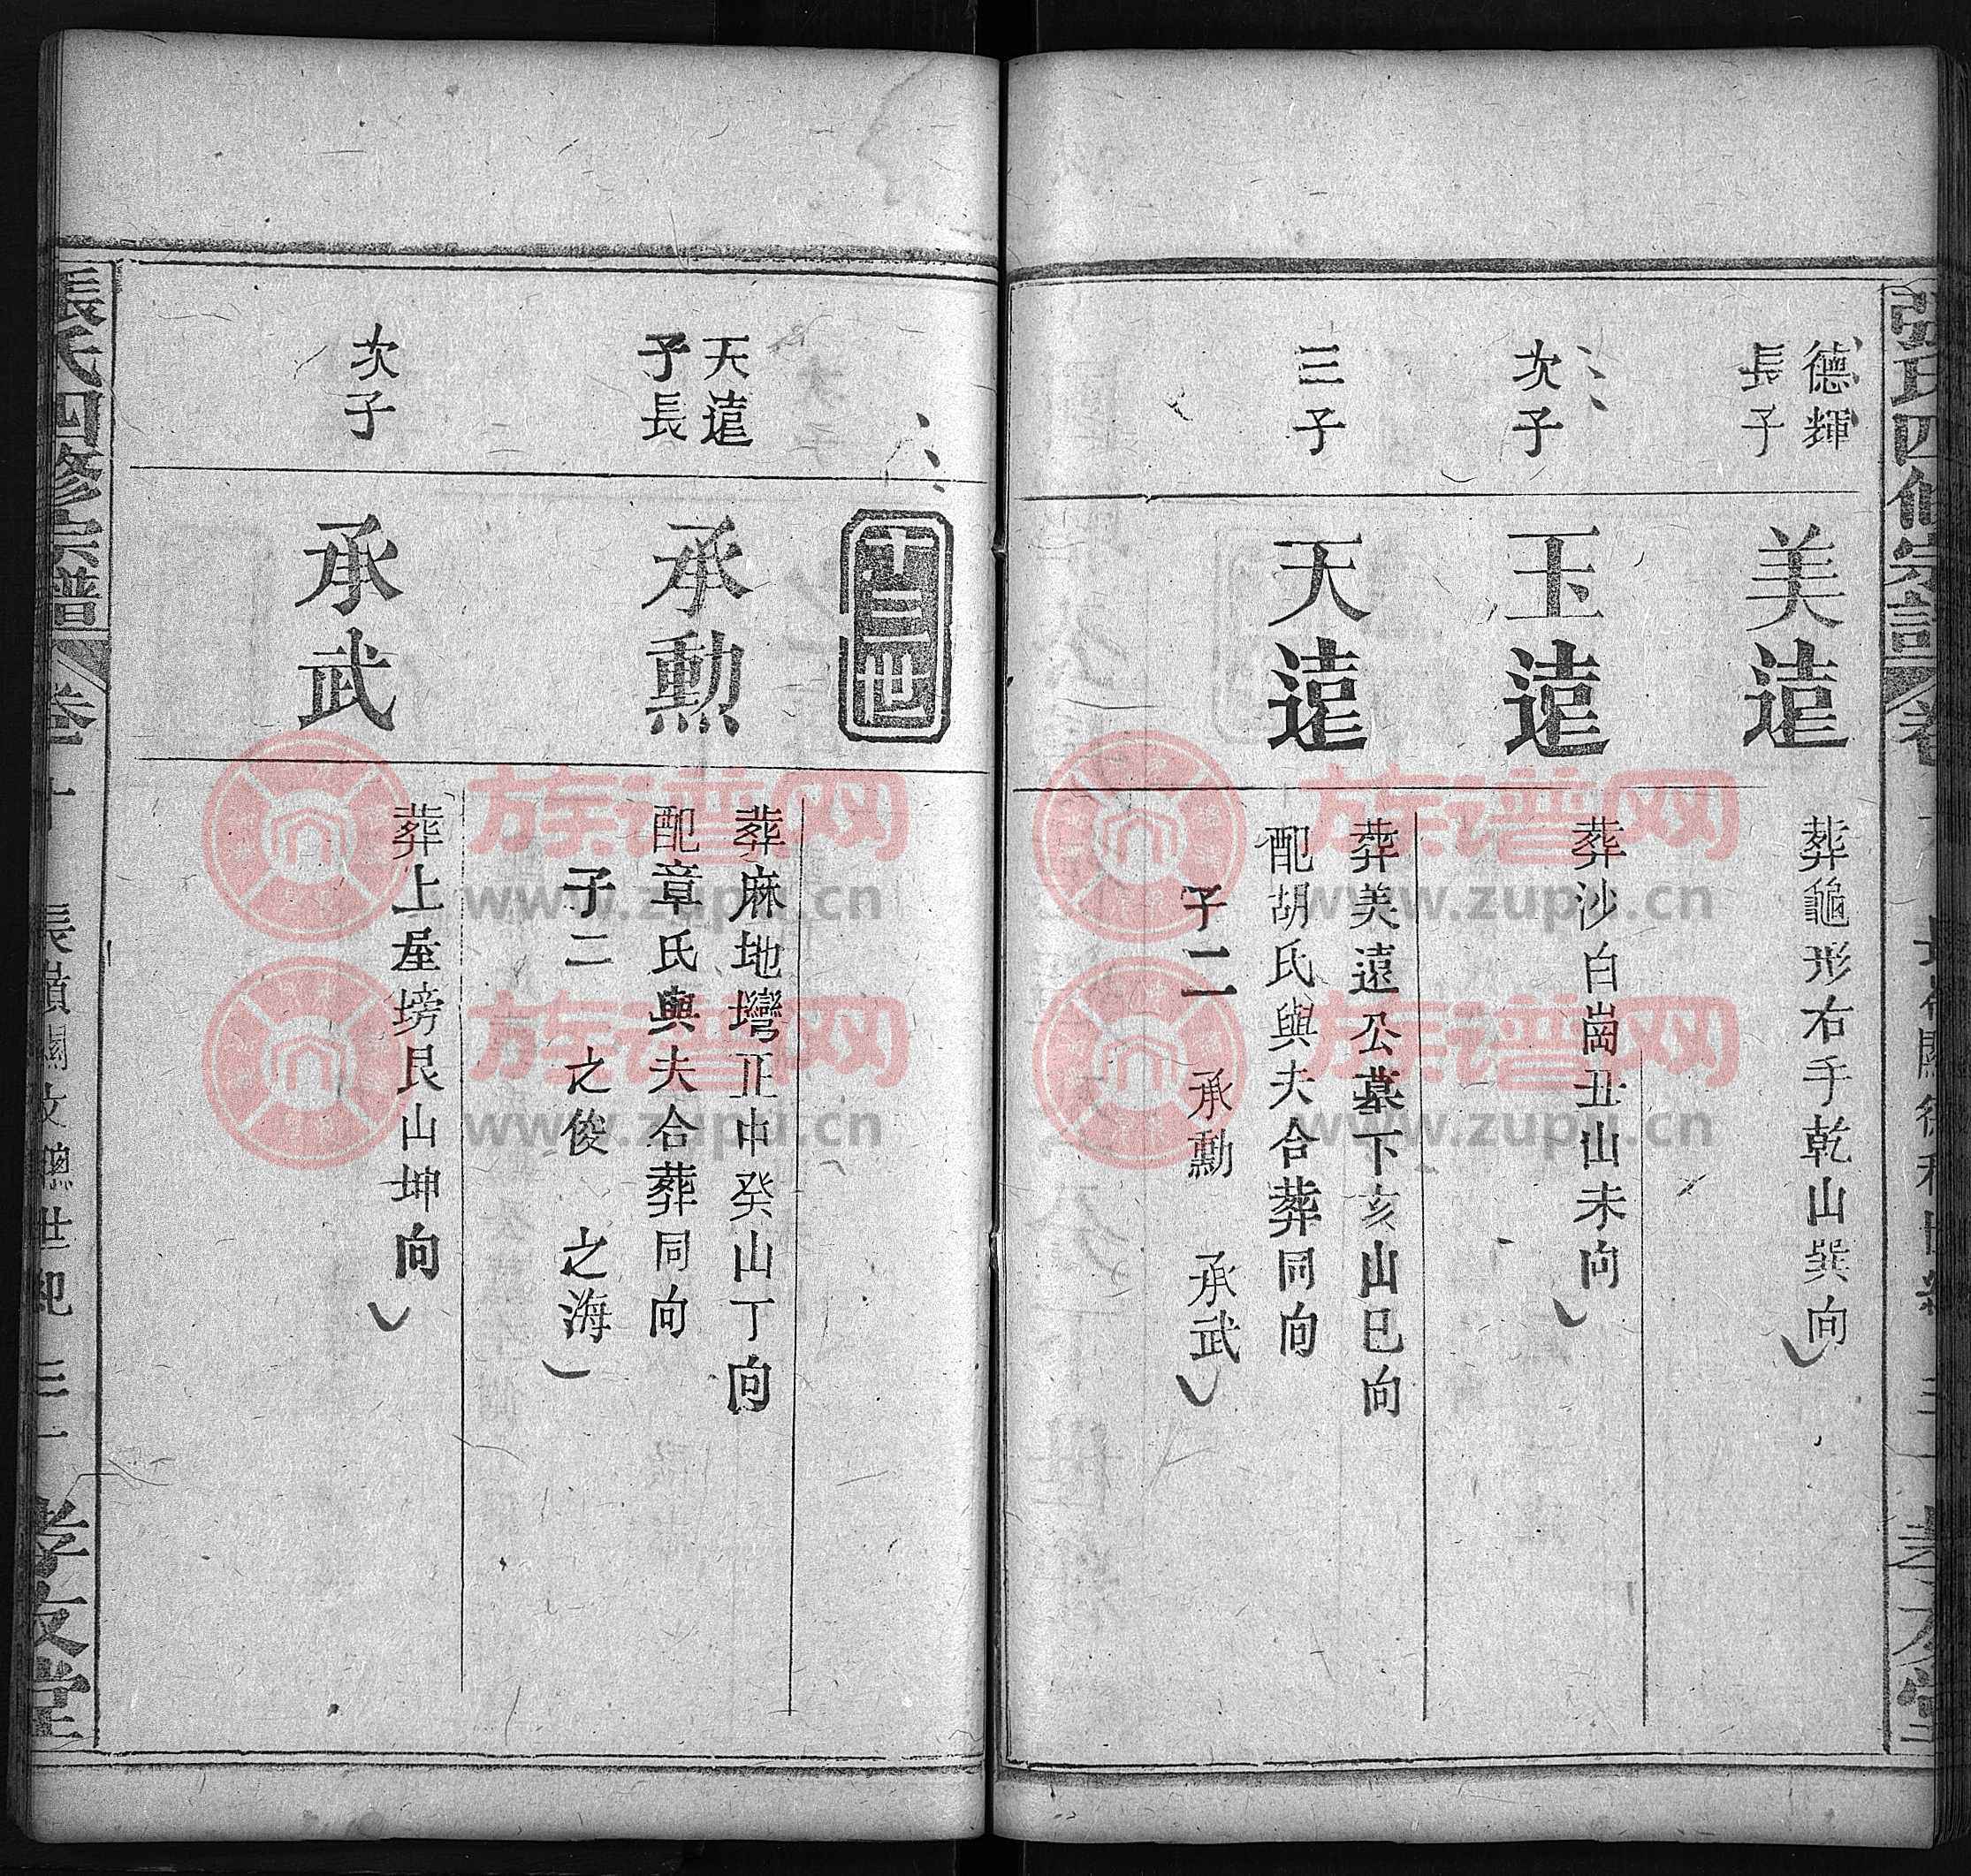 德輝
長子
美遠
葬龜形右手乾山巽向
次子
玉遠
葬沙白崗丑山未向
三子
天遠
葬美遠公墓下亥山巳向
配胡氏與夫合葬同向
子二 承勳 承武
十三世
天遠
子長
承勳
葬麻地灣正中癸山丁向
配章氏與夫合葬同向
子二 之俊 之海
次子
承武
葬上屋塝艮山坤向
張氏四修宗譜
孝友堂
族谱网
www.zupu.cn
族谱网
www.zupu.cn
族谱网
www.zupu.cn
族谱网
www.zupu.cn